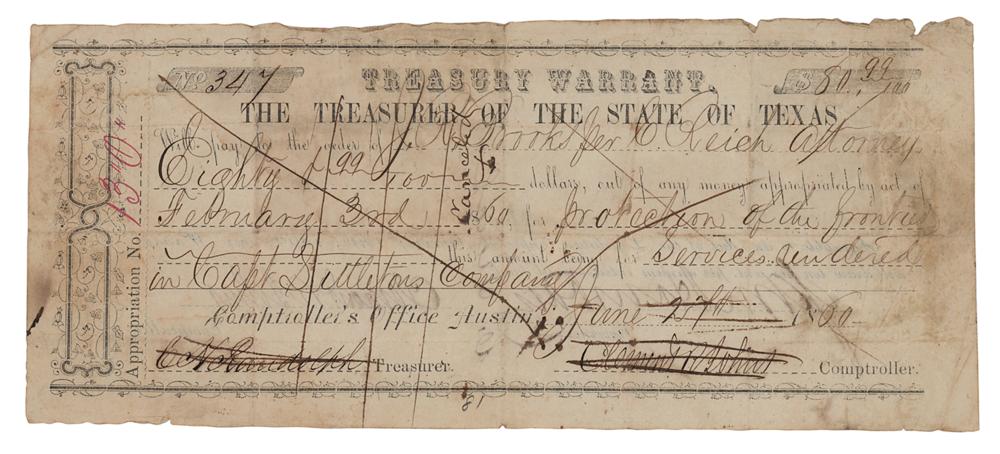 No 347 TREASURY WARRANT. $80. 99/100
THE TREASURER OF THE STATE OF TEXAS
Will pay to the order of Brooks per C. Reich Attorney
Eighty & 99/100 dollars, out of any money appropriated by act of
February 3rd 1860 for protection of the frontier
this amount being for Services rendered
in Capt Littletons Company
Comptroller's Office Austin, June 27th 1860
C H Randolph Treasurer. Clement R Johns Comptroller.
Appropriation No. 1340
Canceled